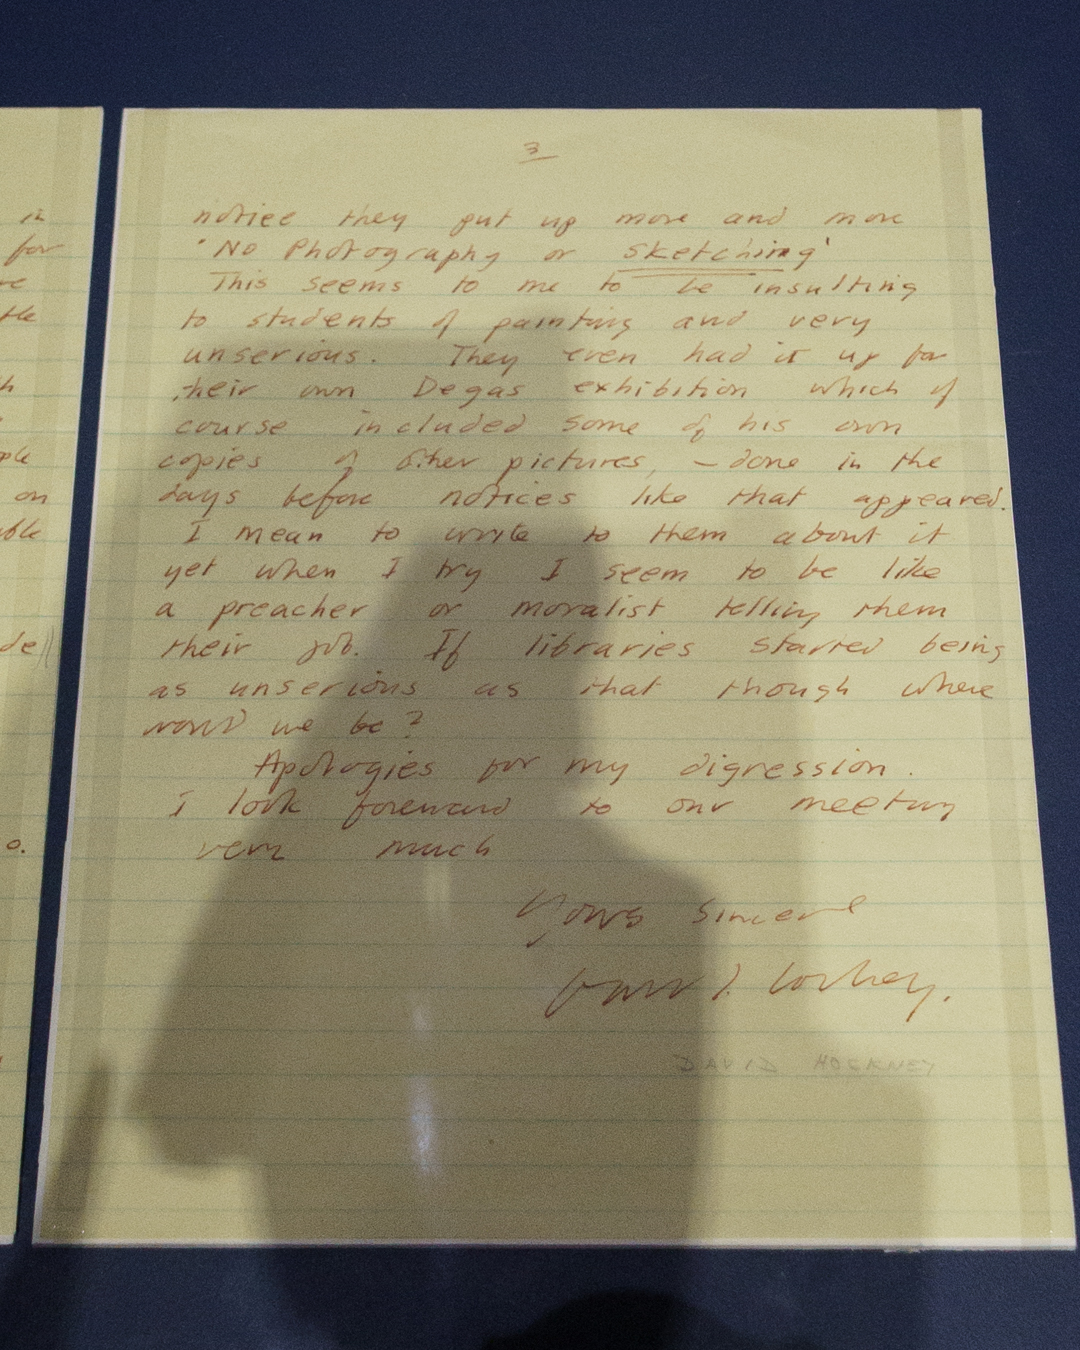 3
in
for
notice they put up more and more
'No Photography or sketching'
This seems to me to be insulting
to students of painting and very
unserious. They even had it up for
their own Degas exhibition which of
course included some of his own
copies of other pictures, – done in the
days before notices like that appeared.
on
I mean to write to them about it
yet when I try I seem to be like
a preacher or moralist telling them
their job. If libraries started being
as unserious as that though where
would we be?
Apologies for my digression.
I look foreward to our meeting
very much
o.
Yours sincerel
David Hockney.
DAVID HOCKNEY